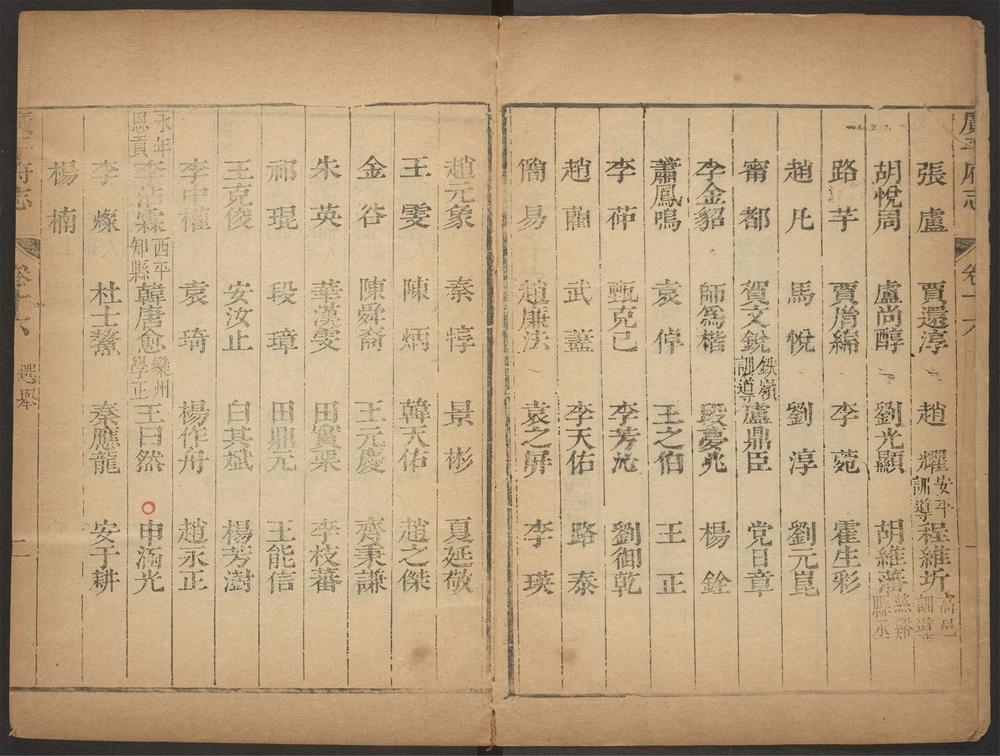 廣平府志 卷十六 一
張盧 賈還淳 趙耀 安平訓導 程維圻 高邑訓導
胡悅周 盧尚醇 劉光顯 胡維藩 慈谿縣丞
路芋 賈脩綸 李菀 霍生彩
趙凡 馬悅 劉淳 劉元崑
甯都 賀文銳 鉄嶺訓導 盧鼎臣 党日章
李金貂 師爲楷 段夢兆 楊銓
蕭鳳鳴 袁倬 王之伯 王正
李茆 甄克己 李芳沁 劉御乾
趙藺 武藎 李天佑 路泰
簡易 趙廉法 袁之屏 李瑛
趙元象 秦惇 景彬 夏延敬
王雯 陳炳 韓天佑 趙之傑
金谷 陳舜裔 王元慶 齊秉謙
朱英 華漢雯 田實栗 李枝蕃
祁琨 段璋 田鼎元 王能信
王克俊 安汝止 白其斌 楊芳澍
李中權 袁琦 楊作舟 趙永正
永年恩貢 李沾霖 西平知縣 韓唐愈 欒州學正 王曰然 申涵光
李燦 杜士鰲 秦應龍 安于耕
楊楠
廣平府志 卷十六 選舉 二